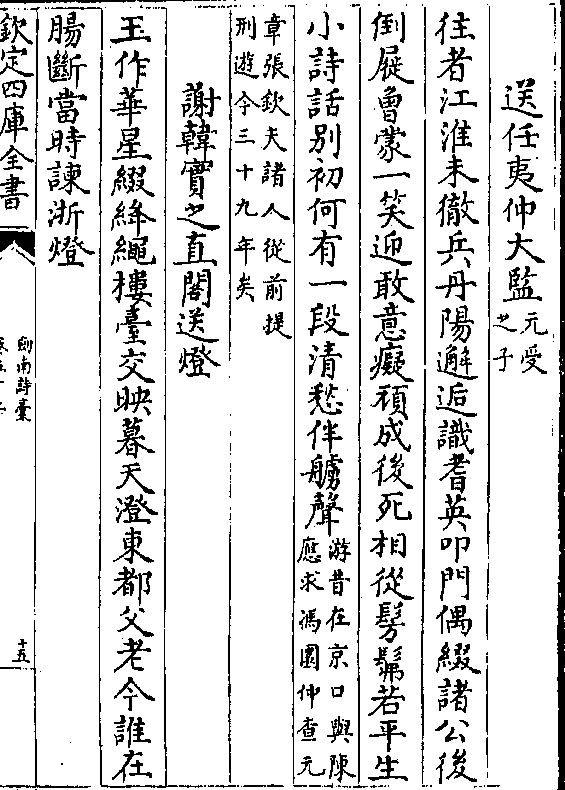 送任夷仲大監元受之子
往者江淮未徹兵丹陽邂逅識耆英叩門偶綴諸公後
倒屣曾蒙一笑迎敢意癡頑成後死相從髣髴若平生
小詩話别初何有一段清愁伴艣聲游昔在京口與陳應求馮圜仲查元
章張欽夫諸人從前提刑遊今三十九年矣
謝韓實之直閣送燈
玉作華星綴絳繩樓臺交映暮天澄東都父老今誰在
腸斷當時諫浙燈
欽定四庫全書
劍南詩藁
十五